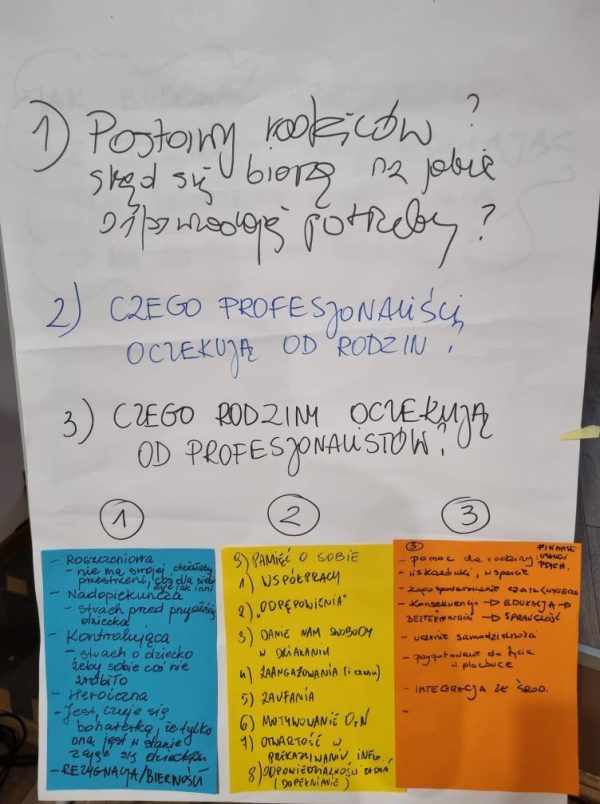 1) Postawy rodziców?
skąd się biorą na jakie
odpowiadają potrzeby?
2) CZEGO PROFESJONALIŚCI
OCZEKUJĄ OD RODZIN?
3) CZEGO RODZINY OCZEKUJĄ
OD PROFESJONALISTÓW?
1
- Roszczeniowa
- nie ma swojej
przestrzeni, coś dla siebie
być jak inni
- Nadopiekuńcza
- strach przed przyszłością
dziecka
- Kontrolująca
- strach o dziecko
żeby sobie coś nie
zrobiło
- Heroiczna
- Jest, czuje się
bohaterką, że tylko
ona jest w stanie
zająć się dzieckiem
- REZYGNACJA/BIERNOŚĆ
2
9) PAMIĘĆ O SOBIE
1) WSPÓŁPRACY
2) "ODPĘPOWIENIA"
3) DANIE NAM SWOBODY
W DZIAŁANIU
4) ZAANGAŻOWANIA (i czasu)
5) ZAUFANIA
6) MOTYWOWANIE OzN
7) OTWARTOŚĆ W
PRZEKAZYWANIU INFO.
8) ODPOWIEDZIALNOŚCI ZADAŃ
(DOPEŁNIANIE)
3
3
FINANSE
USŁUGI
PSYCH.
- pomoc dla rodziny
- wskazówki, wsparcie
- zagospodarowanie czasu
- Konsekwencji → EDUKACJA →
BEZTERMINÓW → SPRAWCZOŚĆ
- uczenie samodzielności
- przygotowanie do życia
w placówce
- INTEGRACJA ZE ŚROD.
-